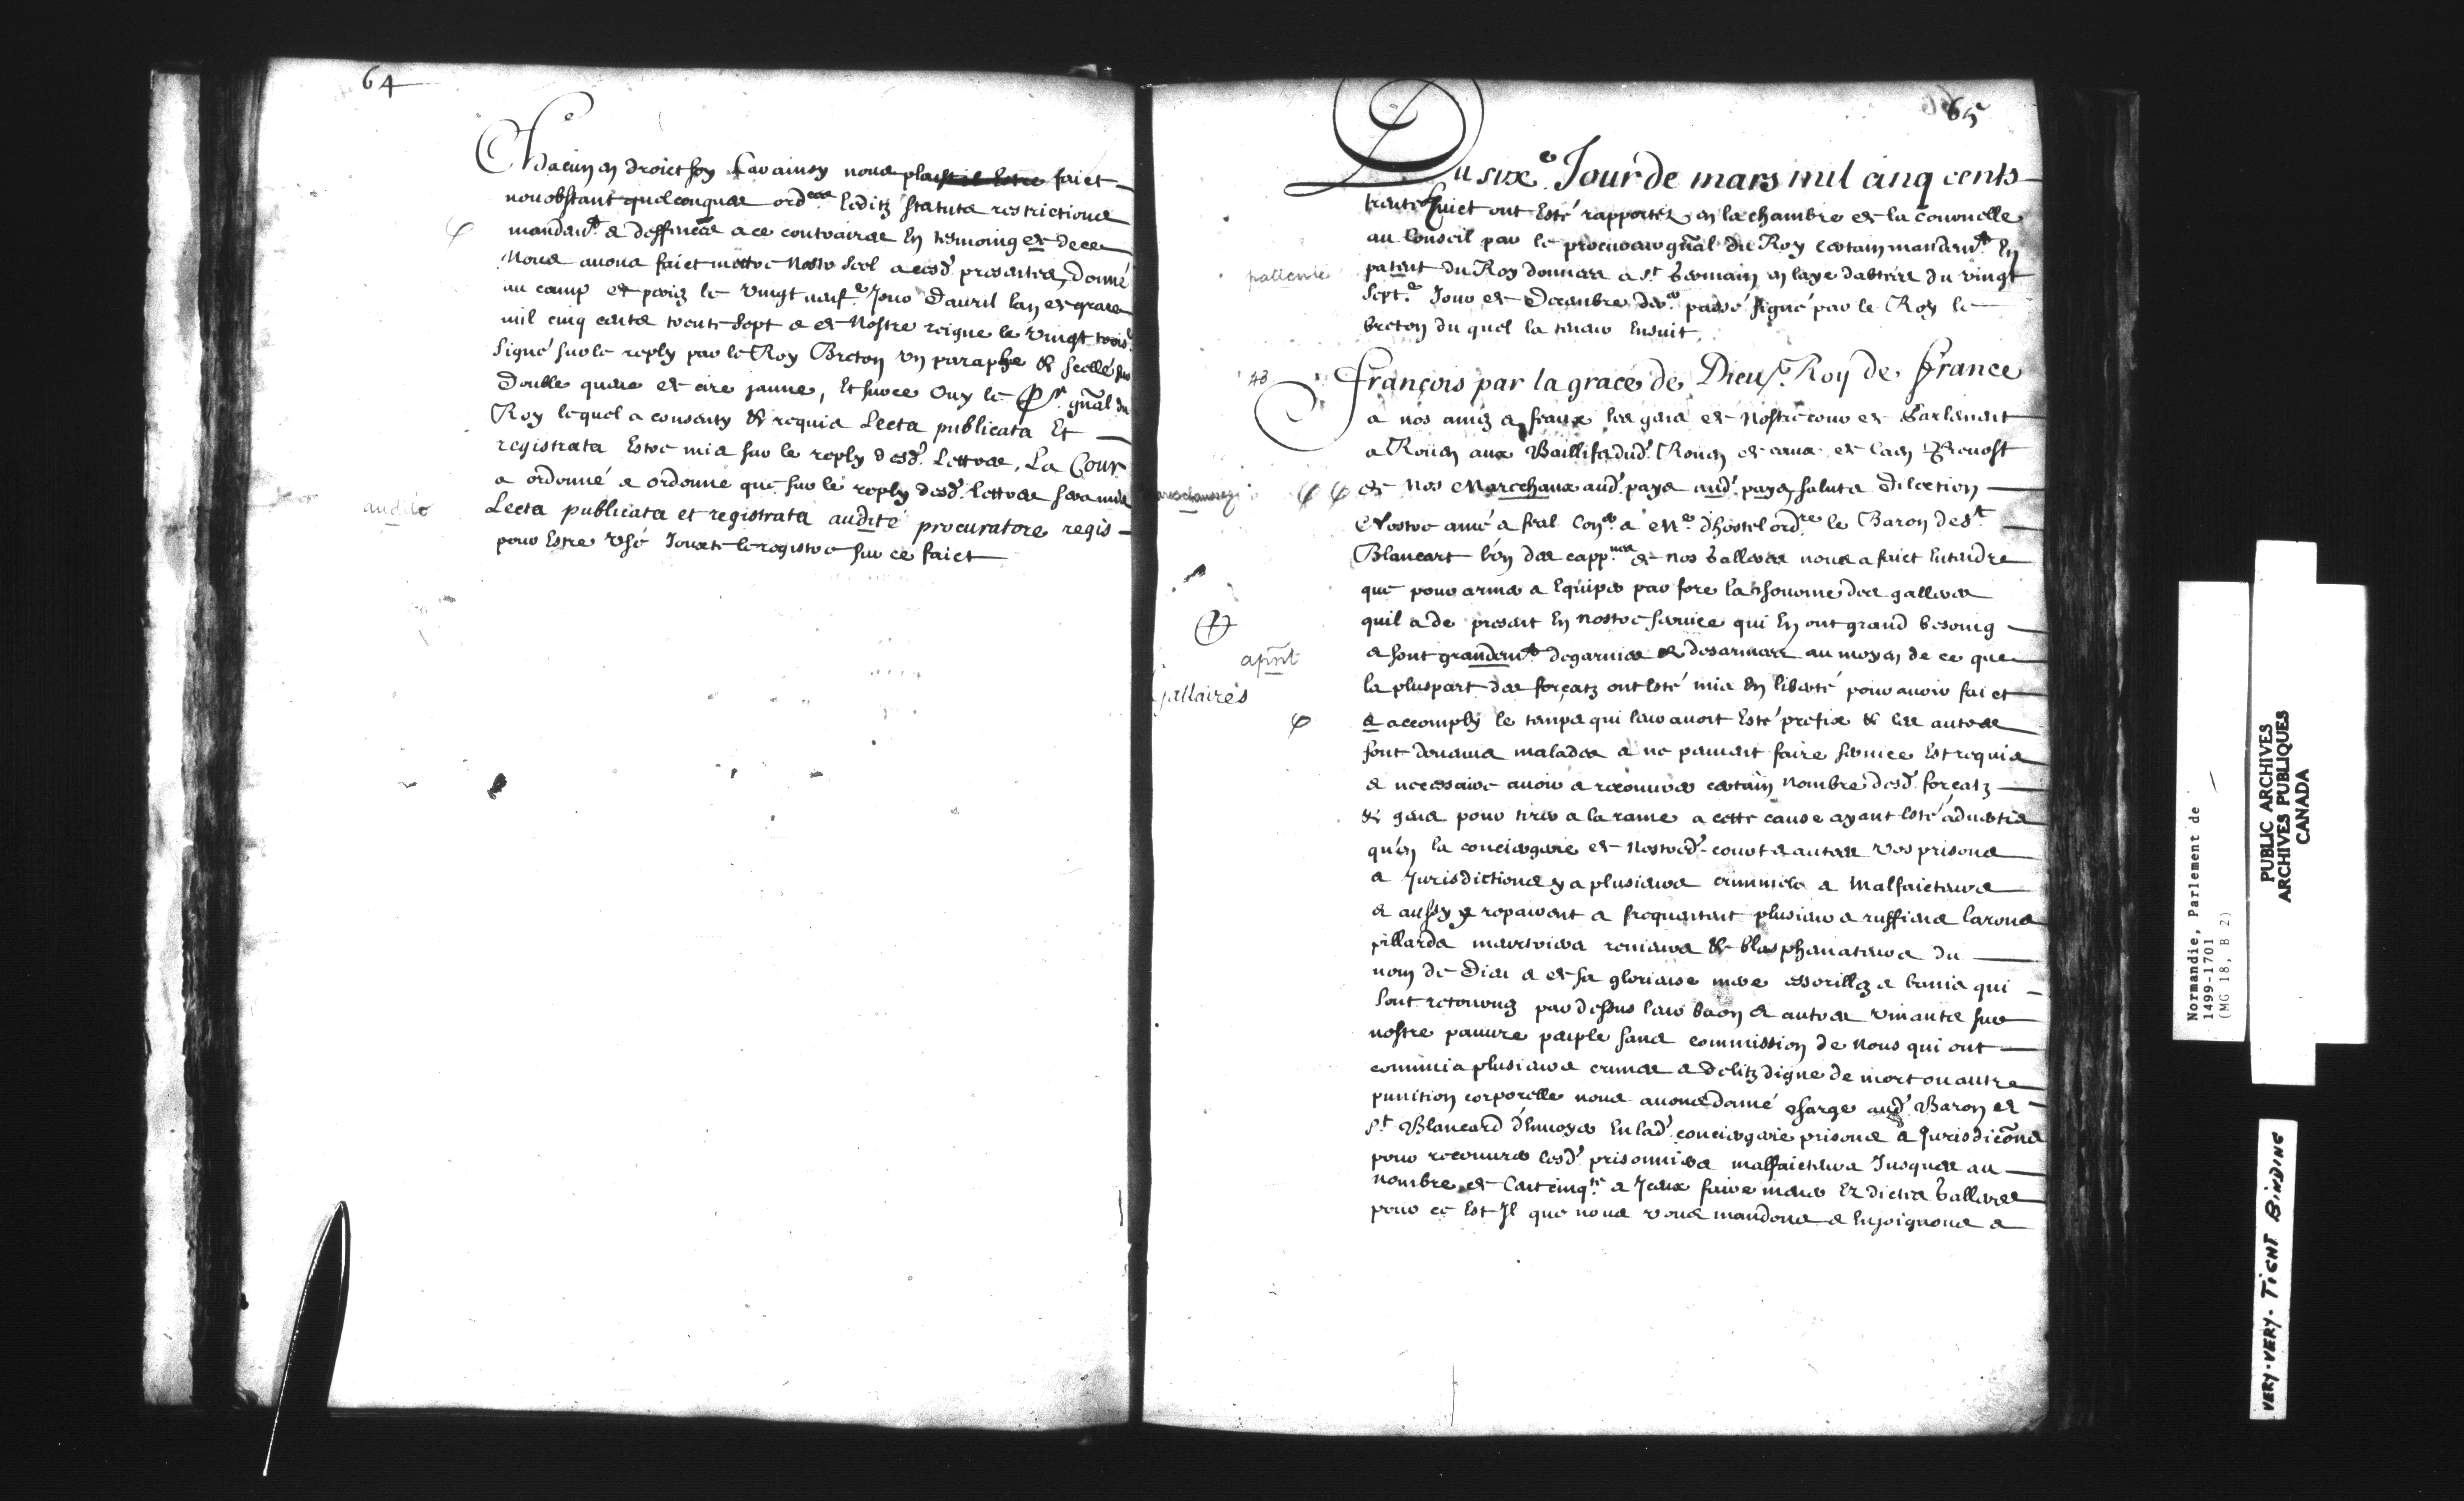 64
Chacun en droict soy Car ainsy nous plaist il estre faict
nonobstant quelconques ord.ces Editz statuts restrictions
mandem.t & deffences a ce contraires En tesmoing de ce
Nous avons faict mettre Nostre Scel a cesd. presentes, donné
au camp le vingt neuf.e Jour d'avril lan de grace
mil cinq cents trente sept & de Nostre reigne le vingt trois.e
Signé sur le reply par le Roy Breton un paraphe & scellé sur
double queue de cire jaune, Et sur ce Ouy le P.r gnal du
Roy lequel a consenty & requis Lecta publicata Et
registrata Estre mis sur le reply desd. Lettres, La Cour
a ordonné & ordonne que sur le reply desd. Lettres sera mis
audito
Lecta publicata et registrata audité procuratore regis
pour Estre Usé Jouxte le registre sur ce faict
65
Du six.e Jour de mars mil cinq cents
trente huict ont Esté rapportez en la chambre de la
au Conseil par le procureur gnal du Roy certain mandem.t En
patente
patent du Roy données a S.t Germain en laye dattées du vingt
Sept.e Jour de Decembre der.er passé signé par le Roy le
breton du quel la teneur Ensuit
43
François par la grace de Dieu Roy de France
a nos amés & feaux les gens de Nostre cour de Parlement
a Roüen aux Baillifs dud. Roüen de caux de Caen Prevost
mareschaussez
de Nos Marechaux aud. pays aud. pays, saluts Dilection
Nostre amé & feal Con.er & M.e dhostel ord.re le Baron de S.t
Blancart l'un des capp.nes de nos Galleres nous a faict Entendre
que pour armer & Equiper par fore la chourme des galleres
quil a de present En nostre service qui En ont grand besoing
apñt
& sont grandem.t degarnies & desarmees au moyen de ce que
Gallaires
la pluspart des forçatz ont Esté mis En liberté pour avoir faict
& accomply le temps qui leur avoit Esté prefix & les autres
sont devenus malades & ne peuvent faire service Est requis
& necessaire avoir & recouvrer certain Nombre desd. forcatz
& gens pour tirer a la rame a cette cause ayant Esté advertis
qu'en la conciergerie de Nostred. cour & autres vos prisons
& Jurisdictions y a plusieurs criminels & Malfaicteurs
& aussy y repairent & frequentent plusieurs ruffiens larons
pillards meurtriers renieurs & blasphemateurs du
nom de Dieu & de sa glorieuse mere essorillez & banis qui
sont retournez par dessus leur baon & autres vivants sur
nostre pauvre peuple sans commission de Nous qui ont
commis plusieurs crimes & delitz digne de mort ou autre
punition corporelle nous avons donné charge aud. Baron de
S.t Blancard d'envoyer En lad. conciergerie prisons & Jurisdicõns
pour recouvrer lesd. prisonniers malfaicteurs Jusques au
nombre de Cent cinq.te & Iceux faire mener Es dictes Galleres
pour ce Est Il que nous vous mandons & Enjoignons &
Normandie, Parlement de
1499-1701
(MG 18, B 2)
PUBLIC ARCHIVES
ARCHIVES PUBLIQUES
CANADA
VERY-VERY-TIGHT BINDING